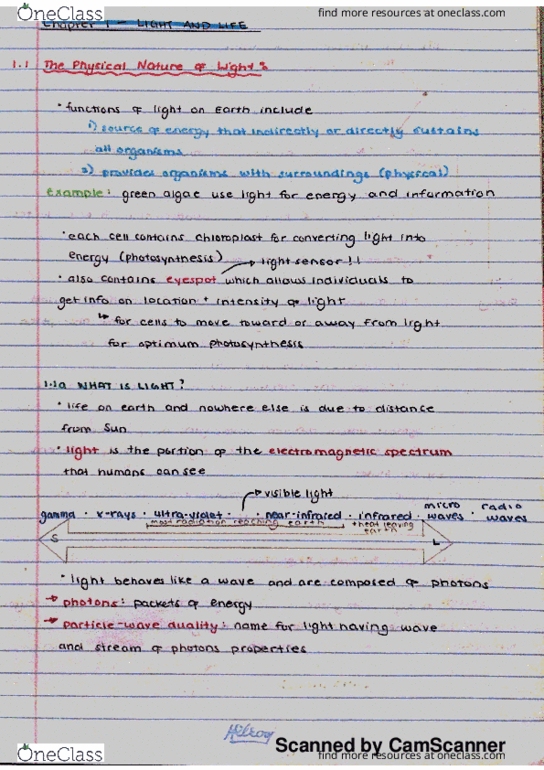 OneClass
find more resources at oneclass.com
Chapter 1 - LIGHT AND LIFE
1.1 The Physical Nature of Light:
· functions of light on Earth include
1) source of energy that indirectly or directly sustains
all organisms
2) provides organisms with surroundings (physical)
example: green algae use light for energy and information
· each cell contains chloroplast for converting light into
energy (photosynthesis) → light sensor!!
· also contains eyespot which allows individuals to
get info on location + intensity of light
↳ for cells to move toward or away from light
for optimum photosynthesis
1.1a WHAT IS LIGHT?
· life on earth and nowhere else is due to distance
from sun
· light is the portion of the electromagnetic spectrum
that humans can see
→ visible light
gamma · x-rays · ultra-violet · · near-infrared · infrared · micro waves · radio waves
most radiation reaching earth
heat leaving earth
S L
· light behaves like a wave and are composed of photons
→ photons: packets of energy
→ particle-wave duality: name for light having wave
and stream of photons properties
Hilroy
Scanned by CamScanner
OneClass
find more resources at oneclass.com